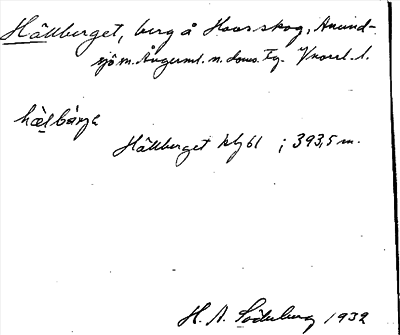 Hällberget, berg å Haas skog, Anund-
sjö sn. Ångerml. n. doms. Tg. Vnorrl. l.
hælbärjə
Hällberget kbj 61 ; 393,5 m.
H. A. Söderberg 1932